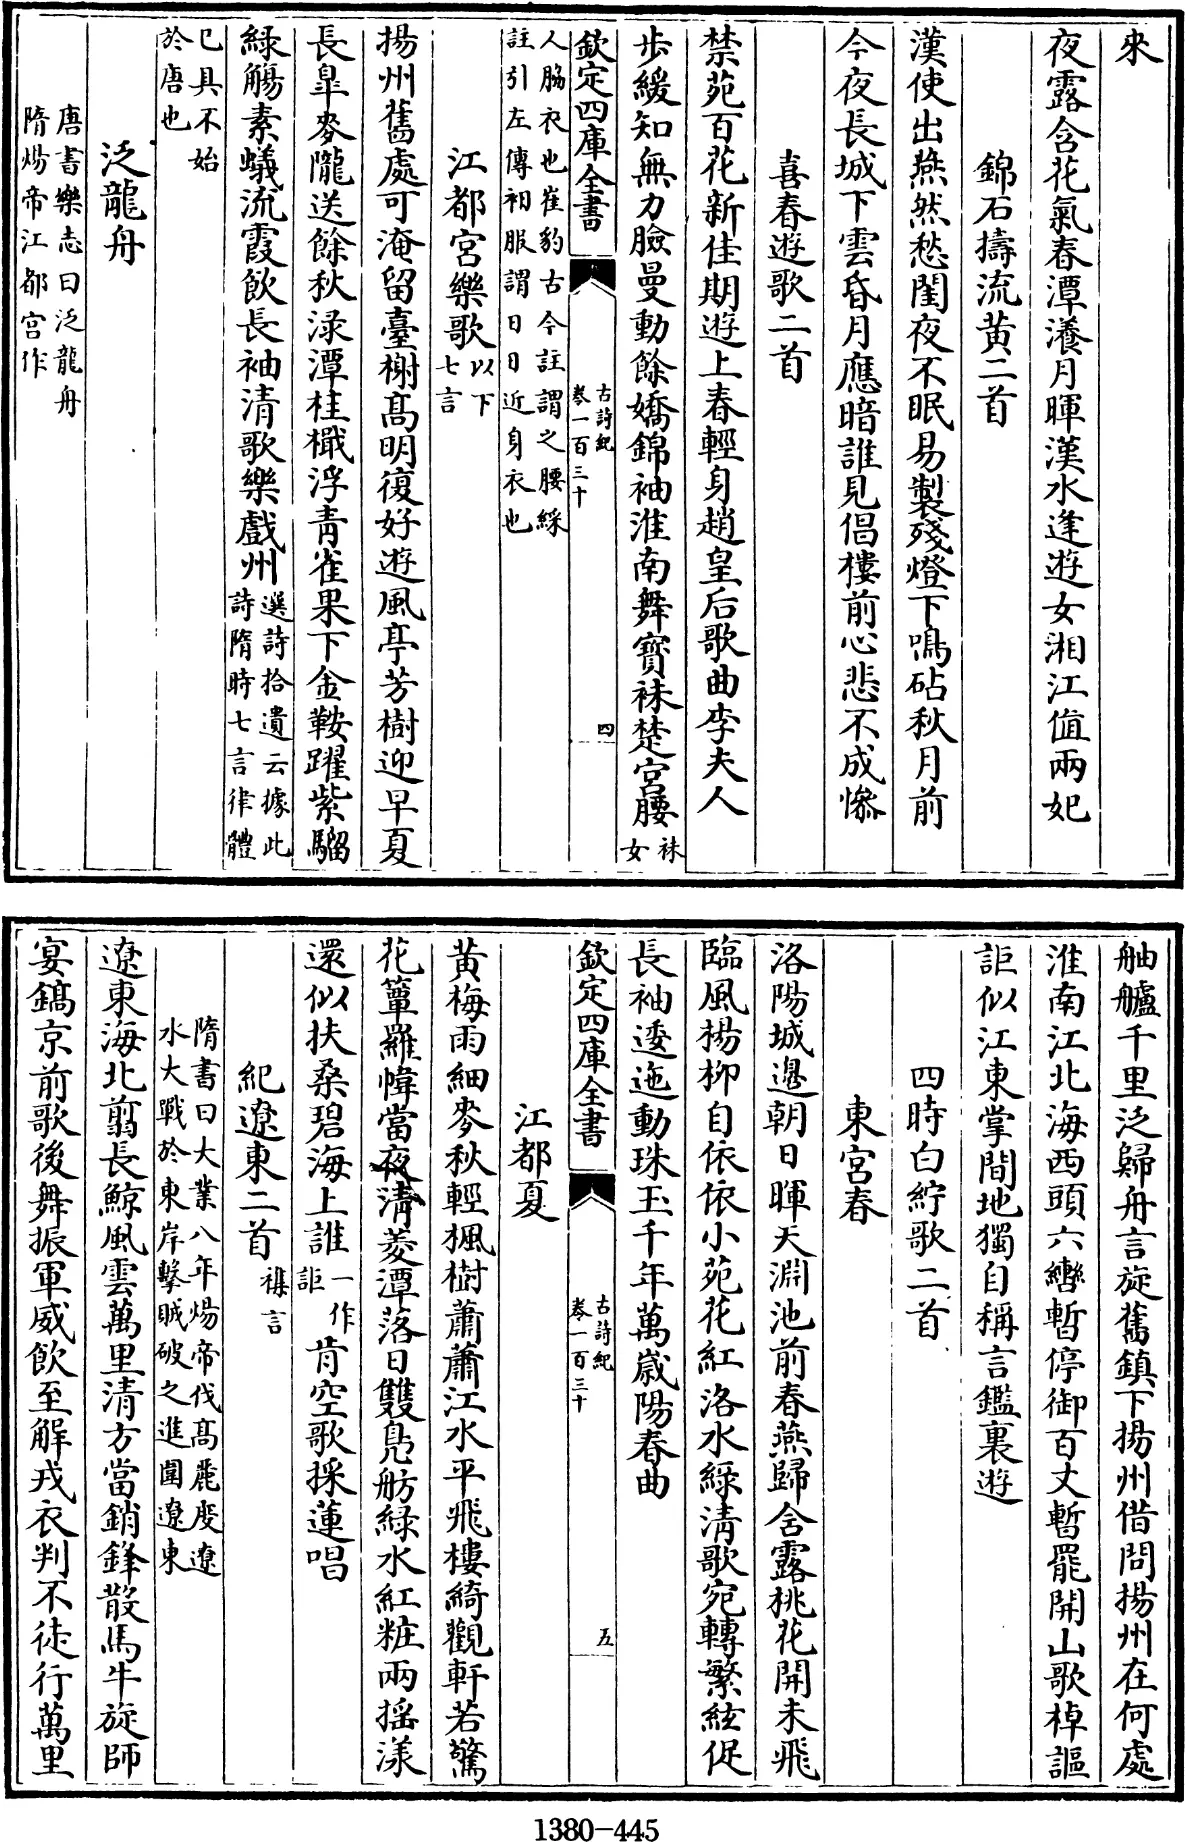 來
夜露含花氣春潭瀁月暉漢水逢遊女湘江値兩妃
錦石擣流黄二首
漢使出燕然愁閨夜不眠易製殘燈下鳴砧秋月前
今夜長城下雲昏月應暗誰見倡樓前心悲不成慘
喜春遊歌二首
禁苑百花新佳期遊上春輕身趙皇后歌曲李夫人
步緩知無力臉曼動餘嬌錦袖淮南舞寳袜楚宮腰袜
女
欽定四庫全書
古詩紀
卷一百三十
四
人脇衣也崔豹古今註謂之腰綵
註引左傳袒服謂日日近身衣也
江都宮樂歌以下
七言
揚州舊處可淹留臺榭髙明復好遊風亭芳樹迎早夏
長皐麥隴送餘秋渌潭桂檝浮青雀果下金鞍躍紫騮
綠觴素蟻流霞飲長袖清歌樂戲州選詩拾遺云據此
詩隋時七言律體
已具不始
於唐也
泛龍舟
唐書樂志曰泛龍舟
隋煬帝江都宮作
舳艫千里泛歸舟言旋舊鎮下揚州借問揚州在何處
淮南江北海西頭六轡暫停御百丈暫罷開山歌棹謳
詎似江東掌間地獨自稱言鑑裏遊
四時白紵歌二首
東宮春
洛陽城邉朝日暉天淵池前春燕歸含露桃花開未飛
臨風楊柳自依依小苑花紅洛水綠清歌宛轉繁絃促
長袖逶迤動珠玉千年萬歳陽春曲
欽定四庫全書
古詩紀
卷一百三十
五
江都夏
黄梅雨細麥秋輕楓樹蕭蕭江水平飛樓綺觀軒若驚
花簟羅幃當夜清菱潭落日雙鳬舫綠水紅粧兩揺漾
還似扶桑碧海上誰一作
詎肯空歌採蓮唱
紀遼東二首襍
言
隋書曰大業八年煬帝伐髙麗度遼
水大戰於東岸擊賊破之進圍遼東
遼東海北翦長鯨風雲萬里清方當銷鋒散馬牛旋師
宴鎬京前歌後舞振軍威飲至解戎衣判不徒行萬里
1380-445